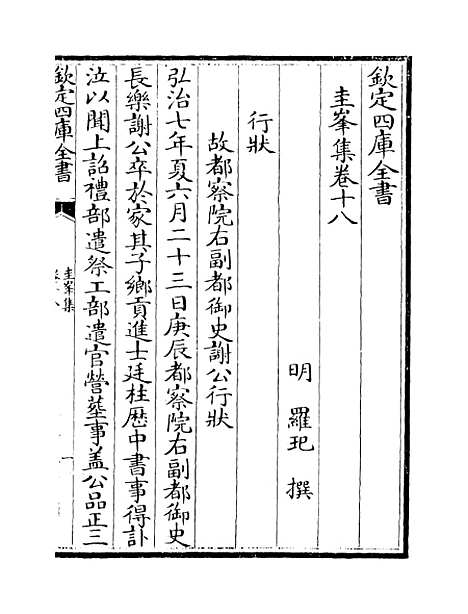 欽定四庫全書
圭峯集卷十八
明 羅玘 撰
行狀
故都察院右副都御史謝公行狀
弘治七年夏六月二十三日庚辰都察院右副都御史
長樂謝公卒於家其子鄉貢進士廷柱歴中書事得訃
泣以聞上詔禮部遣祭工部遣官營塟事盖公品正三
欽定四庫全書
圭峯集
卷十八
一